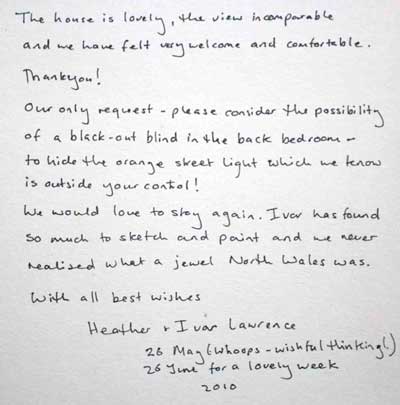 The house is lovely, the view incomparable
and we have felt very welcome and comfortable.
Thankyou!
Our only request - please consider the possibility
of a black-out blind in the back bedroom -
to hide the orange street light which we know
is outside your contol!
We would love to stay again. Ivor has found
so much to sketch and paint and we never
realised what a jewel North Wales was.
With all best wishes
Heather + Ivor Lawrence
26 May (Whoops - wishful thinking!)
26 June for a lovely week
2010